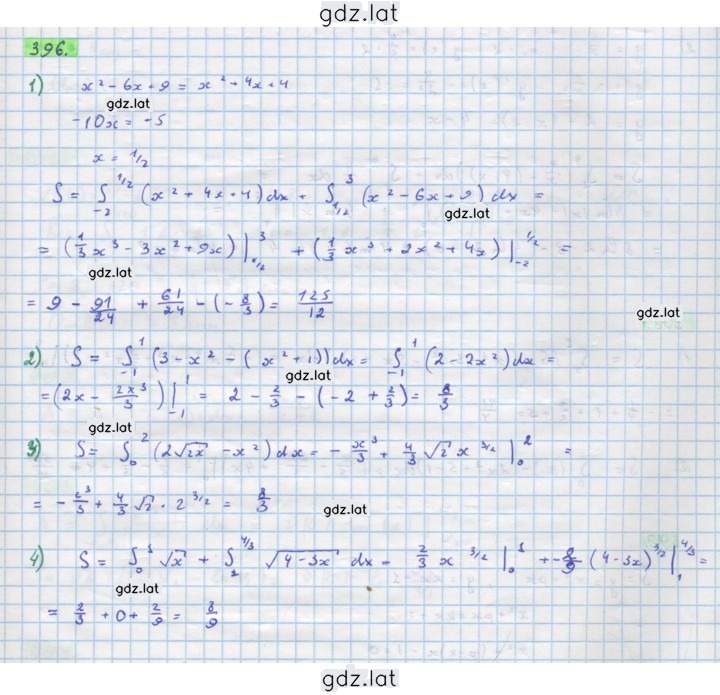 gdz.lat
396.
1) x² - 6x + 9 = x² + 4x + 4
gdz.lat
-10x = -5
x = 1/2
S = ∫₋₂^1/2 (x² + 4x + 4) dx + ∫_1/2^3 (x² - 6x + 9) dx =
gdz.lat
= (1/3 x³ - 3x² + 9x) |_1/2^3 + (1/3 x³ + 2x² + 4x) |₋₂^1/2 =
gdz.lat
= 9 - 91/24 + 61/24 - (-8/3) = 125/12
gdz.lat
2) S = ∫₋₁^1 (3 - x² - (x² + 1)) dx = ∫₋₁^1 (2 - 2x²) dx =
gdz.lat
= (2x - 2x³/3) |₋₁^1 = 2 - 2/3 - (-2 + 2/3) = 8/3
gdz.lat
3) S = ∫₀^2 (2√2x - x²) dx = - x³/3 + 4/3 √2 x^3/2 |₀^2 =
= - 2³/3 + 4/3 √2 · 2^3/2 = 8/3
gdz.lat
4) S = ∫₀^1 √x + ∫₁^4/3 √4-3x dx = 2/3 x^3/2 |₀^1 + -2/9 (4-3x)^3/2 |₁^4/3 =
gdz.lat
= 2/3 + 0 + 2/9 = 8/9
gdz.lat